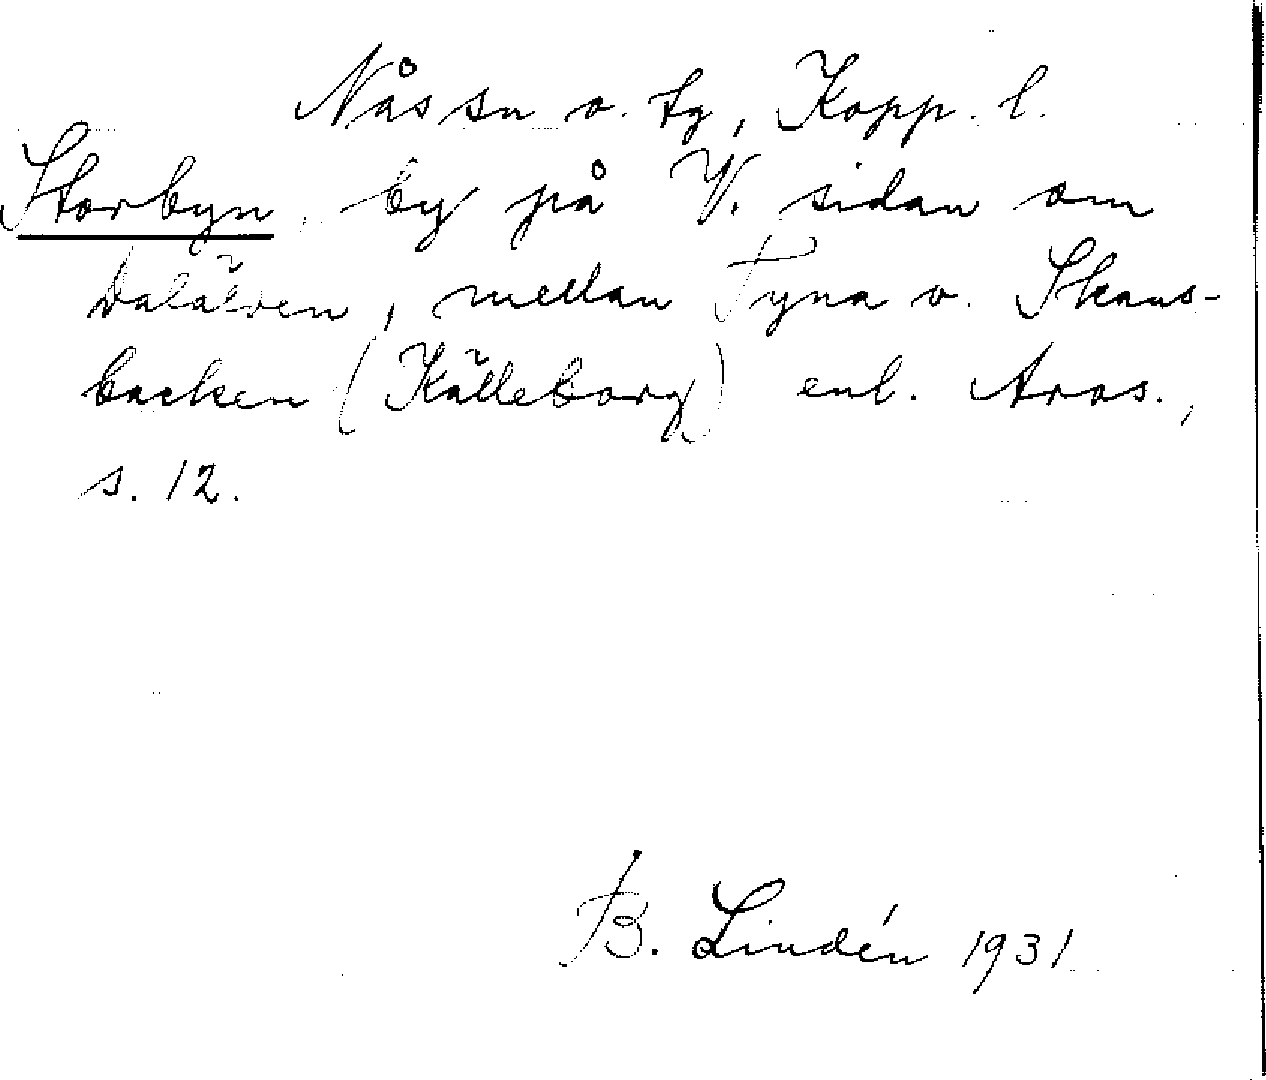 Nås sn o. tg, Kopp. l.
Storbyn, by på V. sidan om
Dalälven, mellan Tyna o. Skans-
backen (Källeborg) enl. Aros.,
s. 12.
B. Lindén 1931